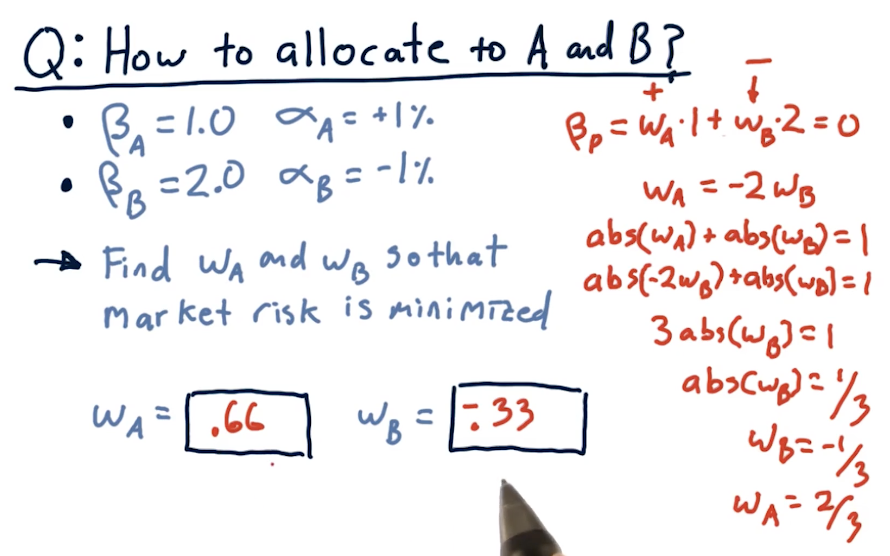 Q: How to allocate to A and B?
• β_A = 1.0 α_A = +1%
• β_B = 2.0 α_B = -1%
→ Find w_A and w_B so that
market risk is minimized
w_A = .66 w_B = -.33
+ -
↓
β_p = w_A·1 + w_B·2 = 0
w_A = -2w_B
abs(w_A) + abs(w_B) = 1
abs(-2w_B) + abs(w_B) = 1
3abs(w_B) = 1
abs(w_B) = 1/3
w_B = -1/3
w_A = 2/3